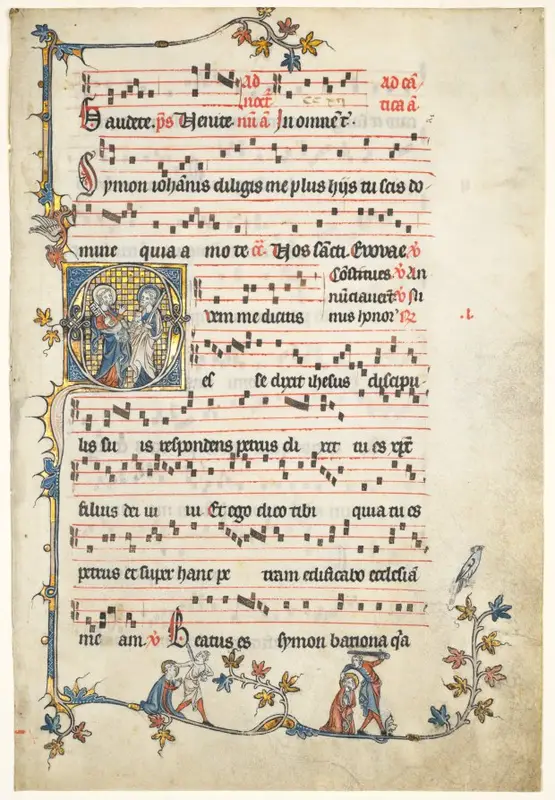 Gaudete. ps Venite. nũ ã In omnem t̃.
ad cã
tica ã.
Symon iohãnis diligis me plus hijs tu scis do
mine quia a mo te Vos sancti. Evovae. v̄
Cõstitues. v̄ An
nũciaverũt v̄ Ni
Quem me dicitis mis honor̃ R̃
es se dixit ihesus discipu
lis su is respondens petrus di xit tu es xp̄c
filius dei ui ui Et ego dico tibi quia tu es
petrus et super hanc pe tram edificabo ecclesiã
me am. v̄ Beatus es symon bariona q̃a
.l.